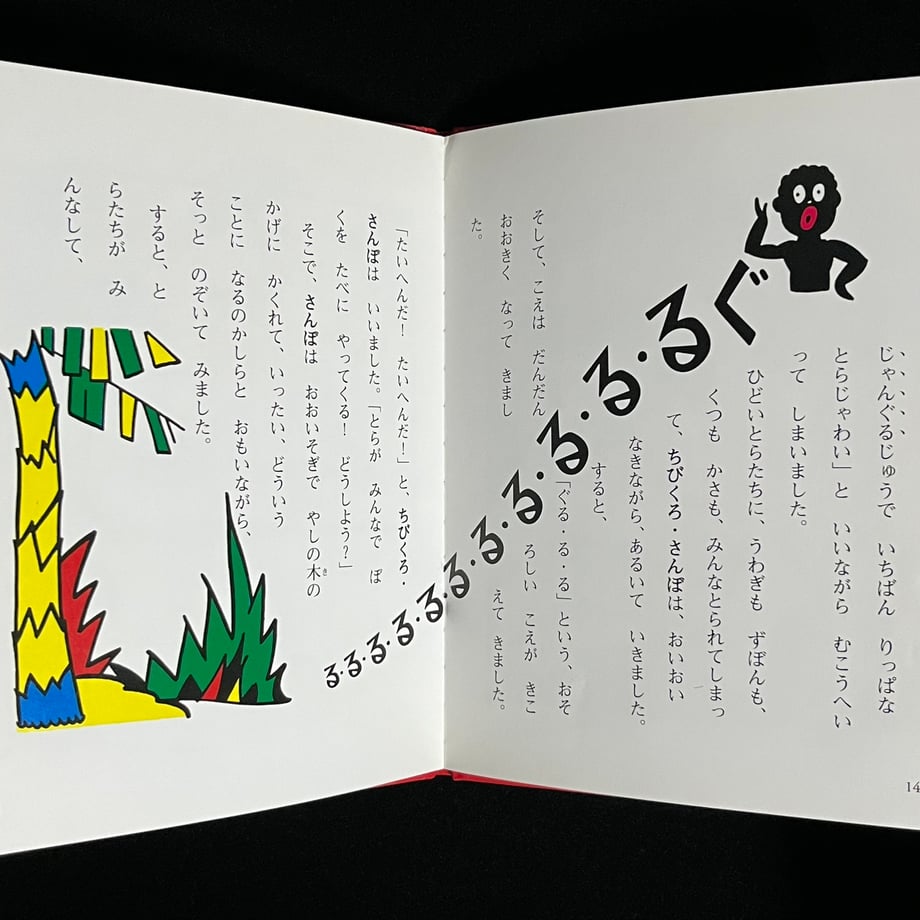 じゃんぐるじゅうで いちばん りっぱな
とらじゃわい」と いいながら むこうへい
って しまいました。
ひどいとらたちに、うわぎも ずぼんも、
くつも かさも、みんなとられてしまっ
て、ちびくろ・さんぼは、おいおい
なきながら、あるいて いきました。
すると、
「ぐる・る・る」という、おそ
ろしい こえが きこ
えて きました。
そして、こえは だんだん
おおきく なって きまし
た。
ぐるる・る・る・る・る・る・る・る・る・る・る
14
「たいへんだ! たいへんだ!」と、ちびくろ・
さんぼは いいました。「とらが みんなで ぼ
くを たべに やってくる! どうしよう?」
そこで、さんぼは おおいそぎで やしの木の
き
かげに かくれて、いったい、どういう
ことに なるのかしらと おもいながら、
そっと のぞいて みました。
すると、と
らたちが み
んなして、